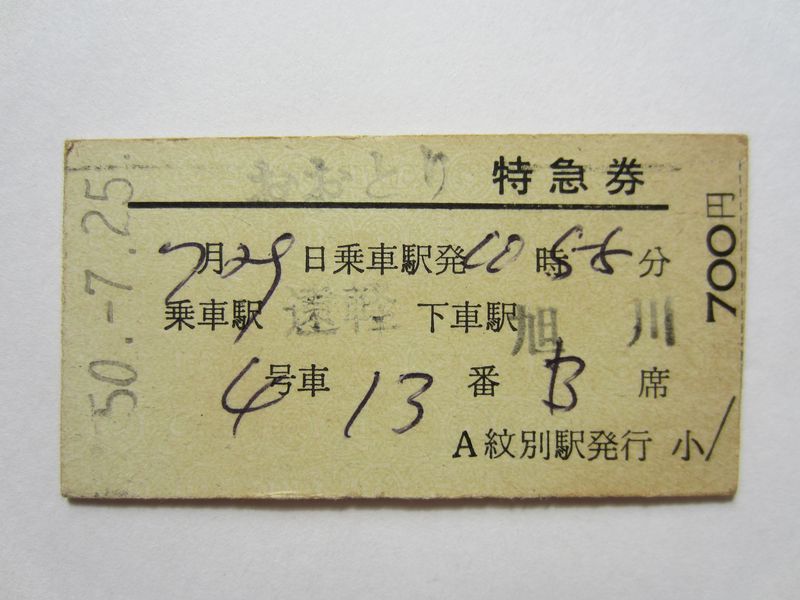 おおとり 特急券
7月29日乗車駅発10時55分
乗車駅 遠軽 下車駅 旭川
4号車 13番B席
A紋別駅発行 小
700円
50.-7.25.